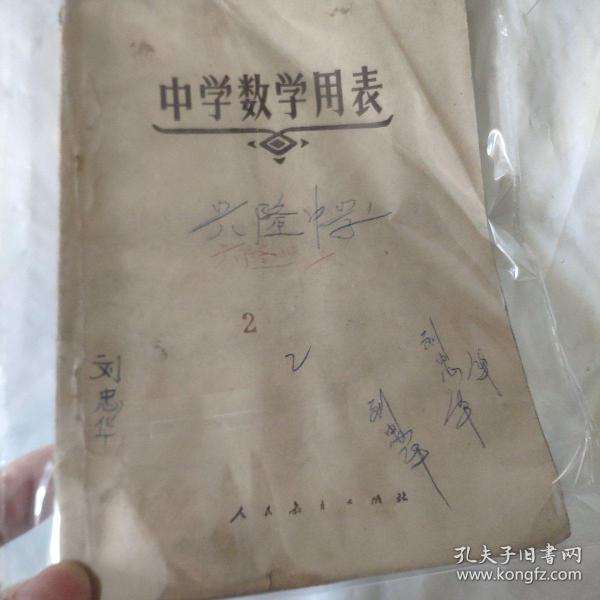 中学数学用表
兴隆中学
兴隆中
2
2
刘忠华
刘忠华
刘忠华
人民教育出版社
孔夫子旧书网
www.kongfz.com